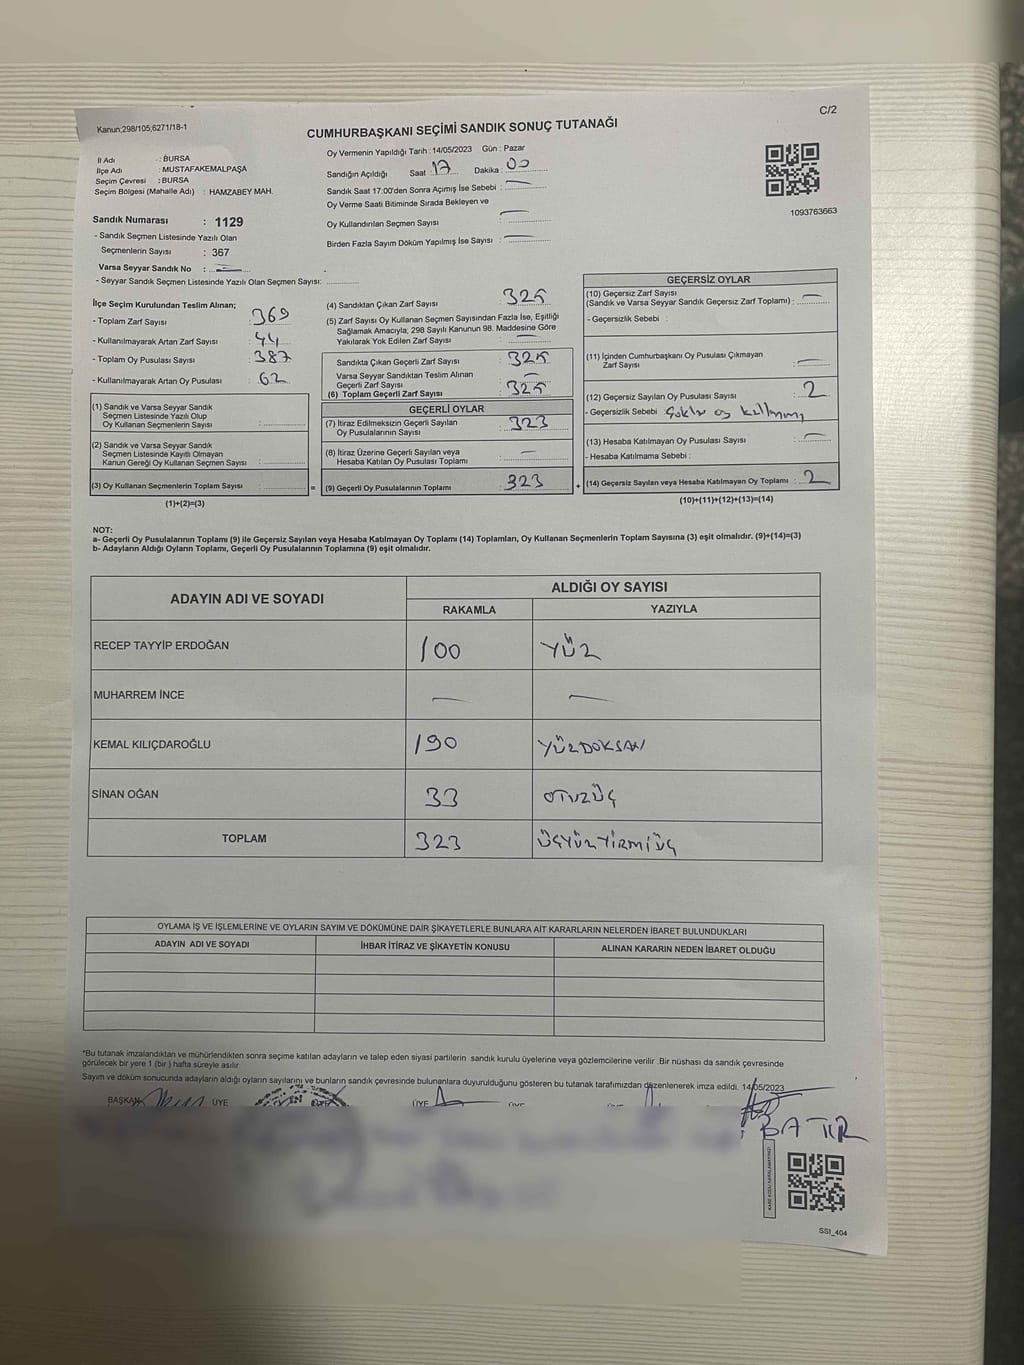 Kanun;298/105;6271/18-1
C/2
CUMHURBAŞKANI SEÇİMİ SANDIK SONUÇ TUTANAĞI
İl Adı : BURSA
İlçe Adı : MUSTAFAKEMALPAŞA
Seçim Çevresi : BURSA
Seçim Bölgesi (Mahalle Adı) : HAMZABEY MAH.
Sandık Numarası : 1129
- Sandık Seçmen Listesinde Yazılı Olan
Seçmenlerin Sayısı : 367
Varsa Seyyar Sandık No : —
- Seyyar Sandık Seçmen Listesinde Yazılı Olan Seçmen Sayısı:
Oy Vermenin Yapıldığı Tarih : 14/05/2023 Gün : Pazar
Sandığın Açıldığı Saat : 17 Dakika : 00
Sandık Saat 17.00'den Sonra Açımış İse Sebebi : —
Oy Verme Saati Bitiminde Sırada Bekleyen ve
Oy Kullandırılan Seçmen Sayısı : —
Birden Fazla Sayım Döküm Yapılmış İse Sayısı : —
1093763663
İlçe Seçim Kurulundan Teslim Alınan;
- Toplam Zarf Sayısı : 369
- Kullanılmayarak Artan Zarf Sayısı : 44
- Toplam Oy Pusulası Sayısı : 387
- Kullanılmayarak Artan Oy Pusulası : 62
(1) Sandık ve Varsa Seyyar Sandık
Seçmen Listesinde Yazılı Olup
Oy Kullanan Seçmenlerin Sayısı :
(2) Sandık ve Varsa Seyyar Sandık
Seçmen Listesinde Kayıtlı Olmayan
Kanun Gereği Oy Kullanan Seçmen Sayısı :
(3) Oy Kullanan Seçmenlerin Toplam Sayısı :
(1)+(2)=(3)
(4) Sandıktan Çıkan Zarf Sayısı : 325
(5) Zarf Sayısı Oy Kullanan Seçmen Sayısından Fazla İse, Eşitliği
Sağlamak Amacıyla, 298 Sayılı Kanunun 98. Maddesine Göre
Yakılarak Yok Edilen Zarf Sayısı : —
Sandıkta Çıkan Geçerli Zarf Sayısı : 325
Varsa Seyyar Sandıktan Teslim Alınan
Geçerli Zarf Sayısı : —
(6) Toplam Geçerli Zarf Sayısı : 325
GEÇERLİ OYLAR
(7) İtiraz Edilmeksizin Geçerli Sayılan
Oy Pusulalarının Sayısı : 323
(8) İtiraz Üzerine Geçerli Sayılan veya
Hesaba Katılan Oy Pusulası Toplamı : —
= (9) Geçerli Oy Pusulalarının Toplamı : 323
GEÇERSİZ OYLAR
(10) Geçersiz Zarf Sayısı
(Sandık ve Varsa Seyyar Sandık Geçersiz Zarf Toplamı) : —
- Geçersizlik Sebebi :
(11) İçinden Cumhurbaşkanı Oy Pusulası Çıkmayan
Zarf Sayısı : —
(12) Geçersiz Sayılan Oy Pusulası Sayısı : 2
- Geçersizlik Sebebi Çoklu oy kullanımı
(13) Hesaba Katılmayan Oy Pusulası Sayısı : —
- Hesaba Katılmama Sebebi :
+ (14) Geçersiz Sayılan veya Hesaba Katılmayan Oy Toplamı : 2
(10)+(11)+(12)+(13)=(14)
NOT:
a- Geçerli Oy Pusulalarının Toplamı (9) ile Geçersiz Sayılan veya Hesaba Katılmayan Oy Toplamı (14) Toplamları, Oy Kullanan Seçmenlerin Toplam Sayısına (3) eşit olmalıdır. (9)+(14)=(3)
b- Adayların Aldığı Oyların Toplamı, Geçerli Oy Pusulalarının Toplamına (9) eşit olmalıdır.
ADAYIN ADI VE SOYADI ALDIĞI OY SAYISI
RAKAMLA YAZIYLA
RECEP TAYYİP ERDOĞAN 100 YÜZ
MUHARREM İNCE — —
KEMAL KILIÇDAROĞLU 190 YÜZDOKSAN
SİNAN OĞAN 33 OTUZÜÇ
TOPLAM 323 ÜÇYÜZYİRMİÜÇ
OYLAMA İŞ VE İŞLEMLERİNE VE OYLARIN SAYIM VE DÖKÜMÜNE DAİR ŞİKAYETLERLE BUNLARA AİT KARARLARIN NELERDEN İBARET BULUNDUKLARI
ADAYIN ADI VE SOYADI İHBAR İTİRAZ VE ŞİKAYETİN KONUSU ALINAN KARARIN NEDEN İBARET OLDUĞU
*Bu tutanak imzalandıktan ve mühürlendikten sonra seçime katılan adayların ve talep eden siyasi partilerin sandık kurulu üyelerine veya gözlemcilerine verilir. Bir nüshası da sandık çevresinde
görülecek bir yere 1 (bir) hafta süreyle asılır
Sayım ve döküm sonucunda adayların aldığı oyların sayılarını ve bunların sandık çevresinde bulunanlara duyurulduğunu gösteren bu tutanak tarafımızdan düzenlenerek imza edildi. 14/05/2023
BAŞKAN ÜYE ÜYE ÜYE ÜYE
BATIR
SSI_404